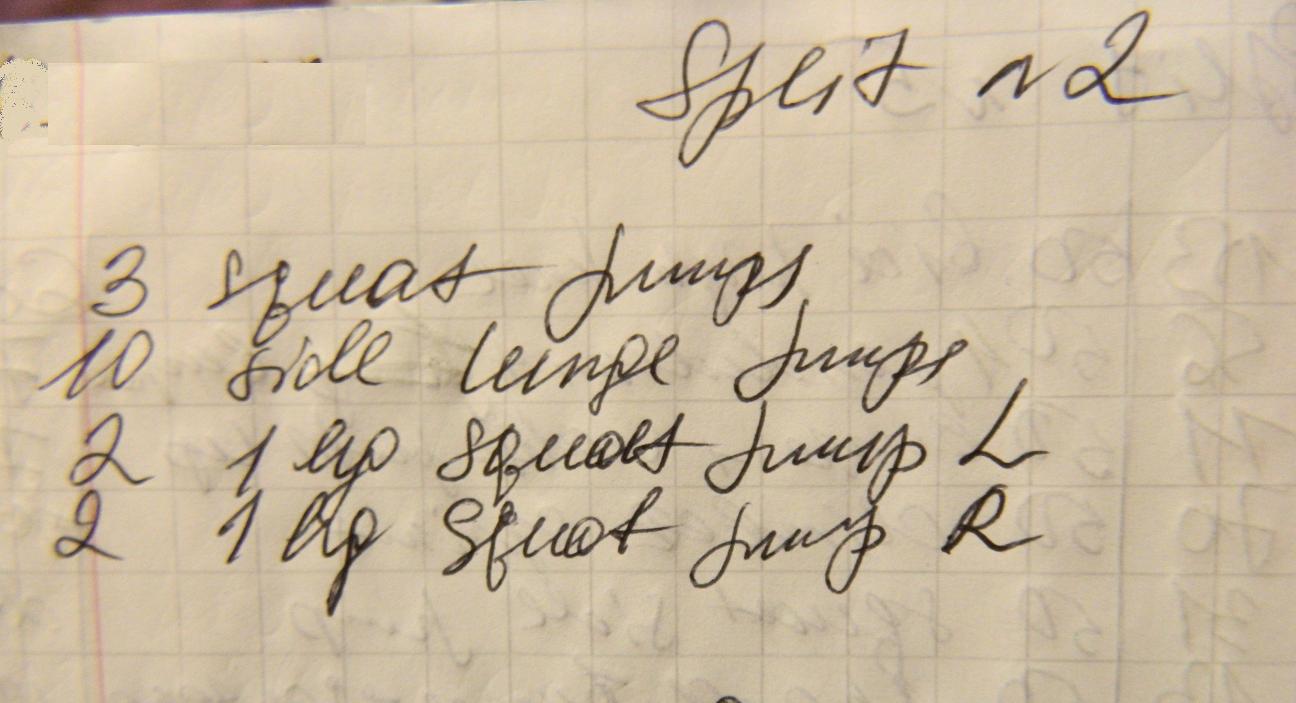 Split n2
3 squat jumps
10 side lunge jumps
2 1 leg squat jump L
2 1 leg squat jump R